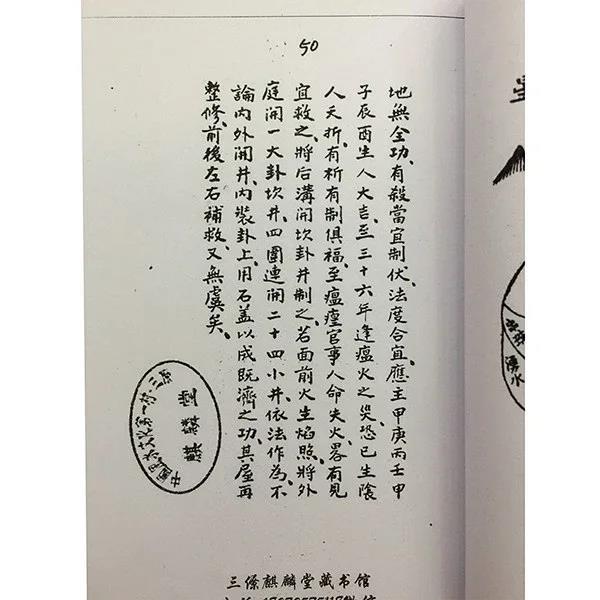 50
地無全功、有殺當宜制伏、法度合宜、應主甲庚丙壬甲
子辰酉生人大吉、至三十六年逢瘟火之災、恐巳生陰
人夭折、有祈有制俱福、至瘟瘽官事人命失火畧有見
宜救之、將后溝開坎卦井制之、若面前火生焰照、將外
庭開一大卦坎井、四圍連開二十四小井、依法作為、不
論內外開井、內裝卦上、用石盖以成既濟之功、其屋再
整修、前後左右補救、又無虞矣、
麒麟堂
中國風水文化第一村·三僚
三僚麒麟堂藏书馆